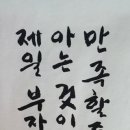 만족할
아는것이
제일부자